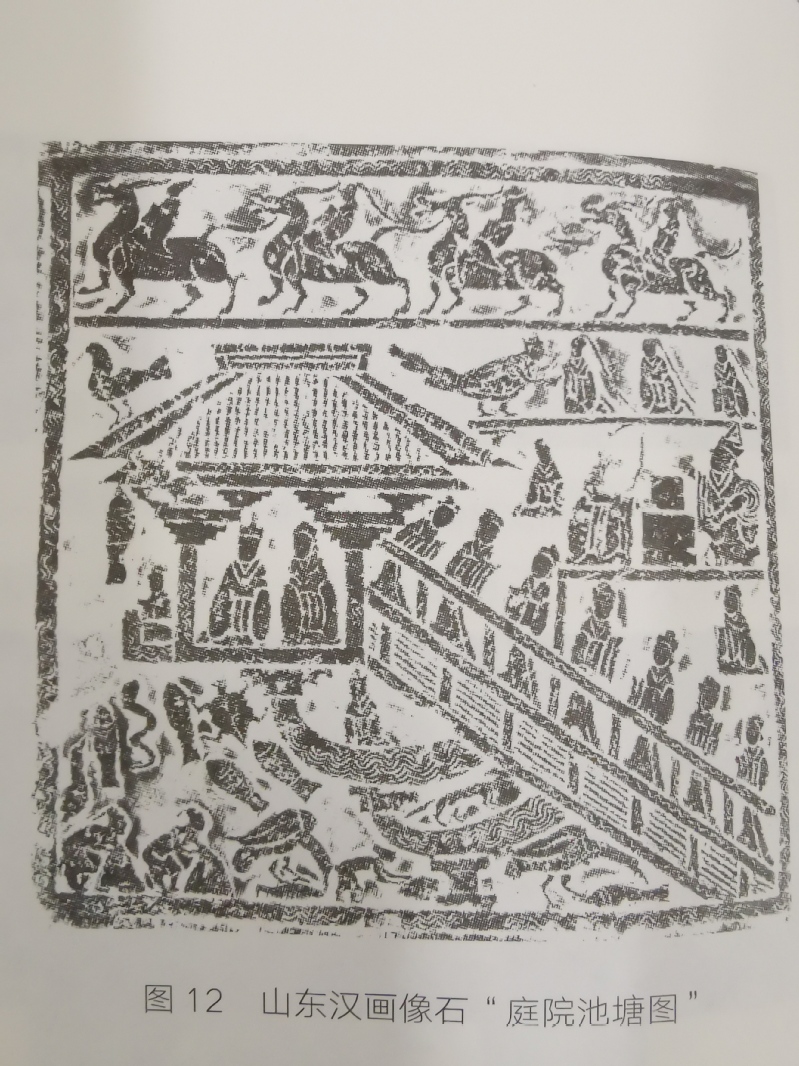 图 12 山东汉画像石“庭院池塘图”